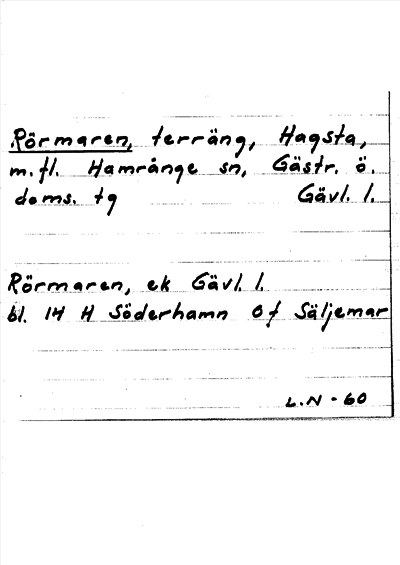 Rörmaren, terräng, Hagsta,
m.fl. Hamrånge sn, Gästr. ö.
doms. tg Gävl. l.
Rörmaren, ek Gävl. l.
bl. 14 H Söderhamn Of Säljemar
L.N - 60